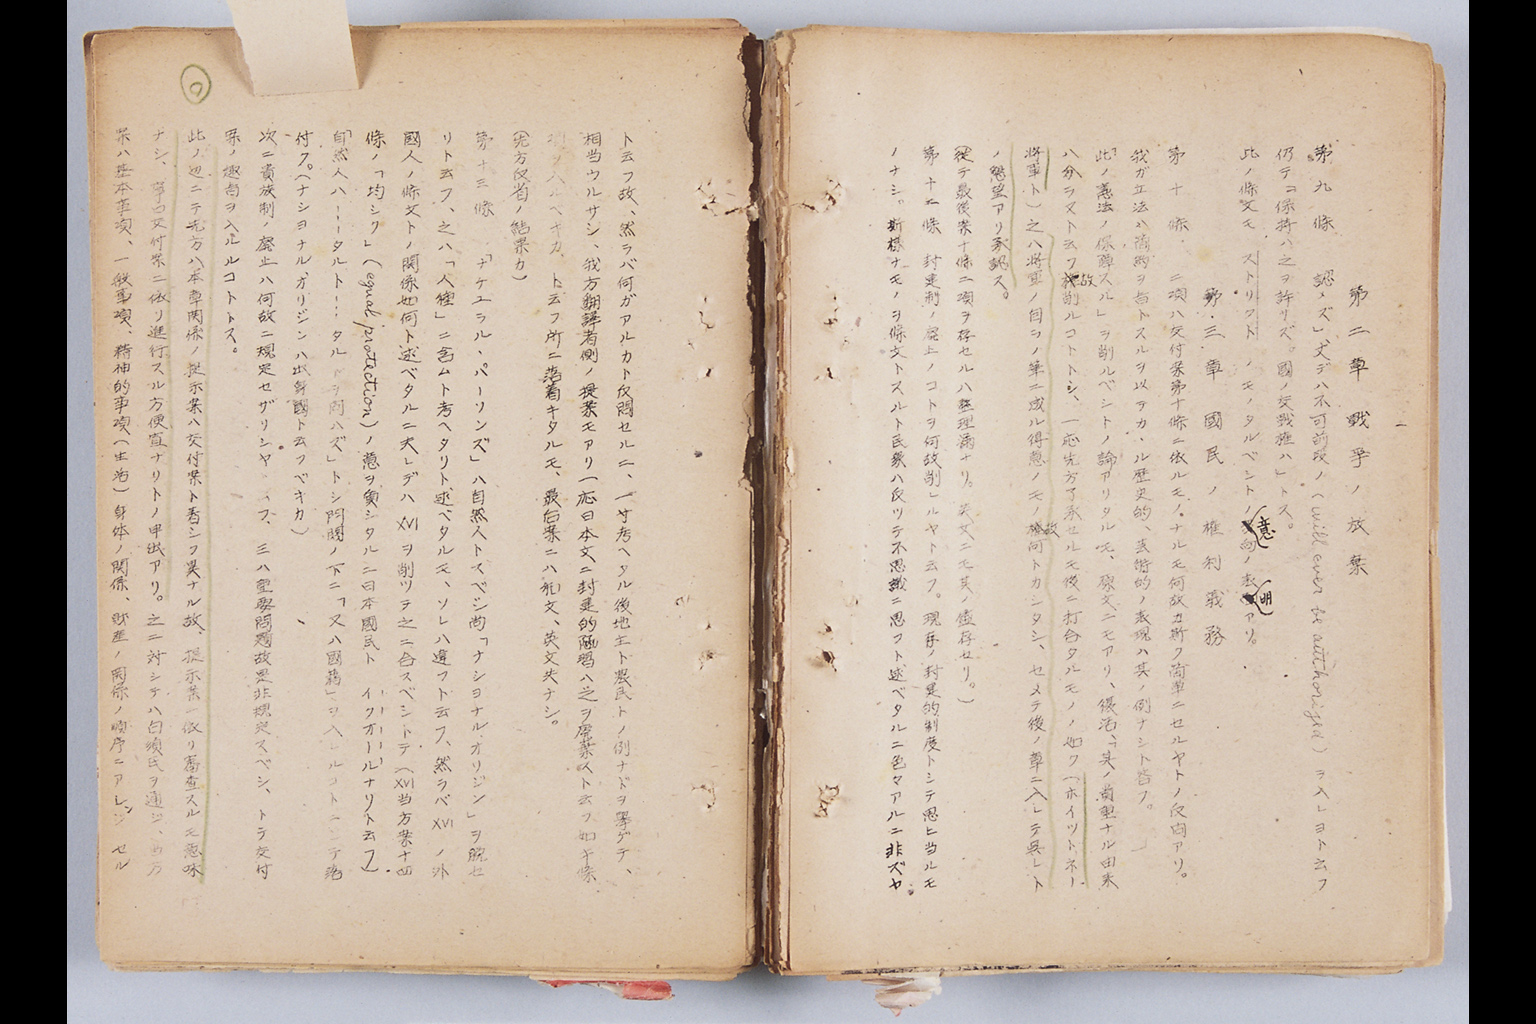 第二章 戦争ノ放棄
第九條 認メズ」丈デハ不可前段ノ(will ever be authorized)ヲ入レヨト云フ
仍テコ保持ハ之ヲ許サズ。國ノ交戦権ハ」トス。
此ノ條文モ ストリクト ノモノタルベシトノ意向ノ表明アリ。
第三章 國民ノ権利義務
第十條 二項ハ交付案第十條ニ依ルモノナルモ何故カ斯ク簡單ニセルヤトノ反問アリ。
我ガ立法ハ簡約ヲ旨トスルヲ以テカヽル歴史的、芸術的ノ表現ハ其ノ例ナシト答フ。
「此ノ憲法ノ保障スル」ヲ削ルベシトノ論アリタルモ、原文ニモアリ、復活、「其ノ貴重ナル由来
ハ分ヲヌスト云フ故削ルコトトシ、一応先方了承セルモ後ニ打合タルモノノ如ク(ホイットネー
将軍ト)之ハ将軍ノ自ラノ筆ニ成ル得意ノモノ故何トカシタシ、セメテ後ノ章ニ入レテ呉レト
ノ懇望アリ承認ス。
(従テ最後案十條二項ヲ存セルハ整理漏ナリ。英文ニモ其ノ儘存セリ。)
第十二條 封建制ノ廃止ノコトヲ何故削レルヤト云フ。現存ノ封建的制度トシテ思ヒ当ルモ
ノナシ。斯様ナモノヲ條文トスルト民衆ハ反ツテ不思議ニ思フト述ベタルニ色々アルニ非ズヤ
ト云フ故、然ラバ何ガアルカト反問セルニ、一寸考ヘタル後地主ト農民トノ例ナドヲ擧ゲテ、
相当ウルサシ、我方翻譯者側ノ提案モアリ(一応日本文ニ封建的陋習ハ之ヲ廃棄スト云フ如キ條
ト云フ所ニ落着キタルモ、最后案ニハ和文、英文共ナシ。
(先方反省ノ結果カ)
第十三條 「ナチュラル・パーソンズ」ハ自然人トスベシ尚「ナショナル・オリジン」ヲ脱セ
リト云フ、之ハ「人種」ニ含ムト考ヘタリト述ベタルモ、ソレハ違フト云フ、然ラバ XVI ノ外
國人ノ條文トノ関係如何ト述ベタルニ夫レデハ XVI ヲ削ツテ之ニ合スベシトテ(XVI当方案十四
條ノ「均シク」(equal protection)ノ意ヲ質シタルニ日本國民ト イクオールナリト云フ)
「自然人ハ——タルト——タルトヲ問ハズ」トシ門閥ノ下ニ「又ハ國籍」ヲ入レルコトニシテ落
付ク。(ナショナルオリジンハ出身國ト云フベキカ)
次ニ貴族制ノ廃止ハ何故ニ規定セザリシヤ フ、三ハ重要問題故是非規定スベシ、トテ交付
案ノ趣旨ヲ入ルルコトトス。
此ノ辺ニテ先方ハ本章関係ノ提示案ハ交付案ト著シク異ナル故、提示案ニ依リ審査スルモ意味
ナシ、寧ロ交付案ニ依リ進行スル方便宜ナリトノ申出アリ。之ニ対シテハ白須氏ヲ通ジ、当方
案ハ基本事項、一般事項、精神的事項(生活)身体ノ関係、財産ノ関係ノ順序ニアレンジセル